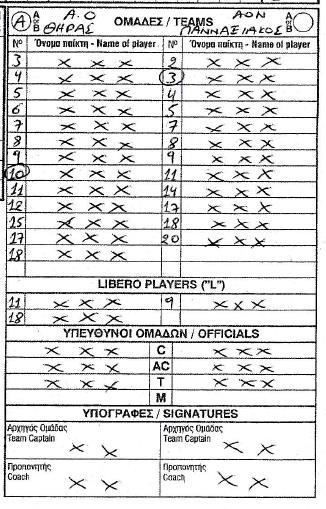 A A or B A.O ΟΜΑΔΕΣ / TEAMS ΑΟΝ A or B
ΘΗΡΑΣ ΠΑΝΝΑΞΙΑΚΟΣ
Νº Όνομα παίκτη - Name of player Νº Όνομα παίκτη - Name of player
3 x x x 2 x x x
4 x x x 3 x x x
5 x x x 4 x x x
6 x x x 5 x x x
7 x x x 7 x x x
8 x x x 8 x x x
9 x x x 9 x x x
10 x x x 11 x x x
11 x x x 14 x x x
12 x x x 17 x x x
15 x x x 18 x x x
17 x x x 20 x x x
18 x x x
LIBERO PLAYERS ("L")
11 x x x 9 x x x
18 x x x
ΥΠΕΥΘΥΝΟΙ ΟΜΑΔΩΝ / OFFICIALS
x x x C x x x
x x x AC x x x
x x x T x x x
M
ΥΠΟΓΡΑΦΕΣ / SIGNATURES
Αρχηγός Ομάδας Αρχηγός Ομάδας
Team Captain x x Team Captain x x
Προπονητής Προπονητής
Coach x x Coach x x